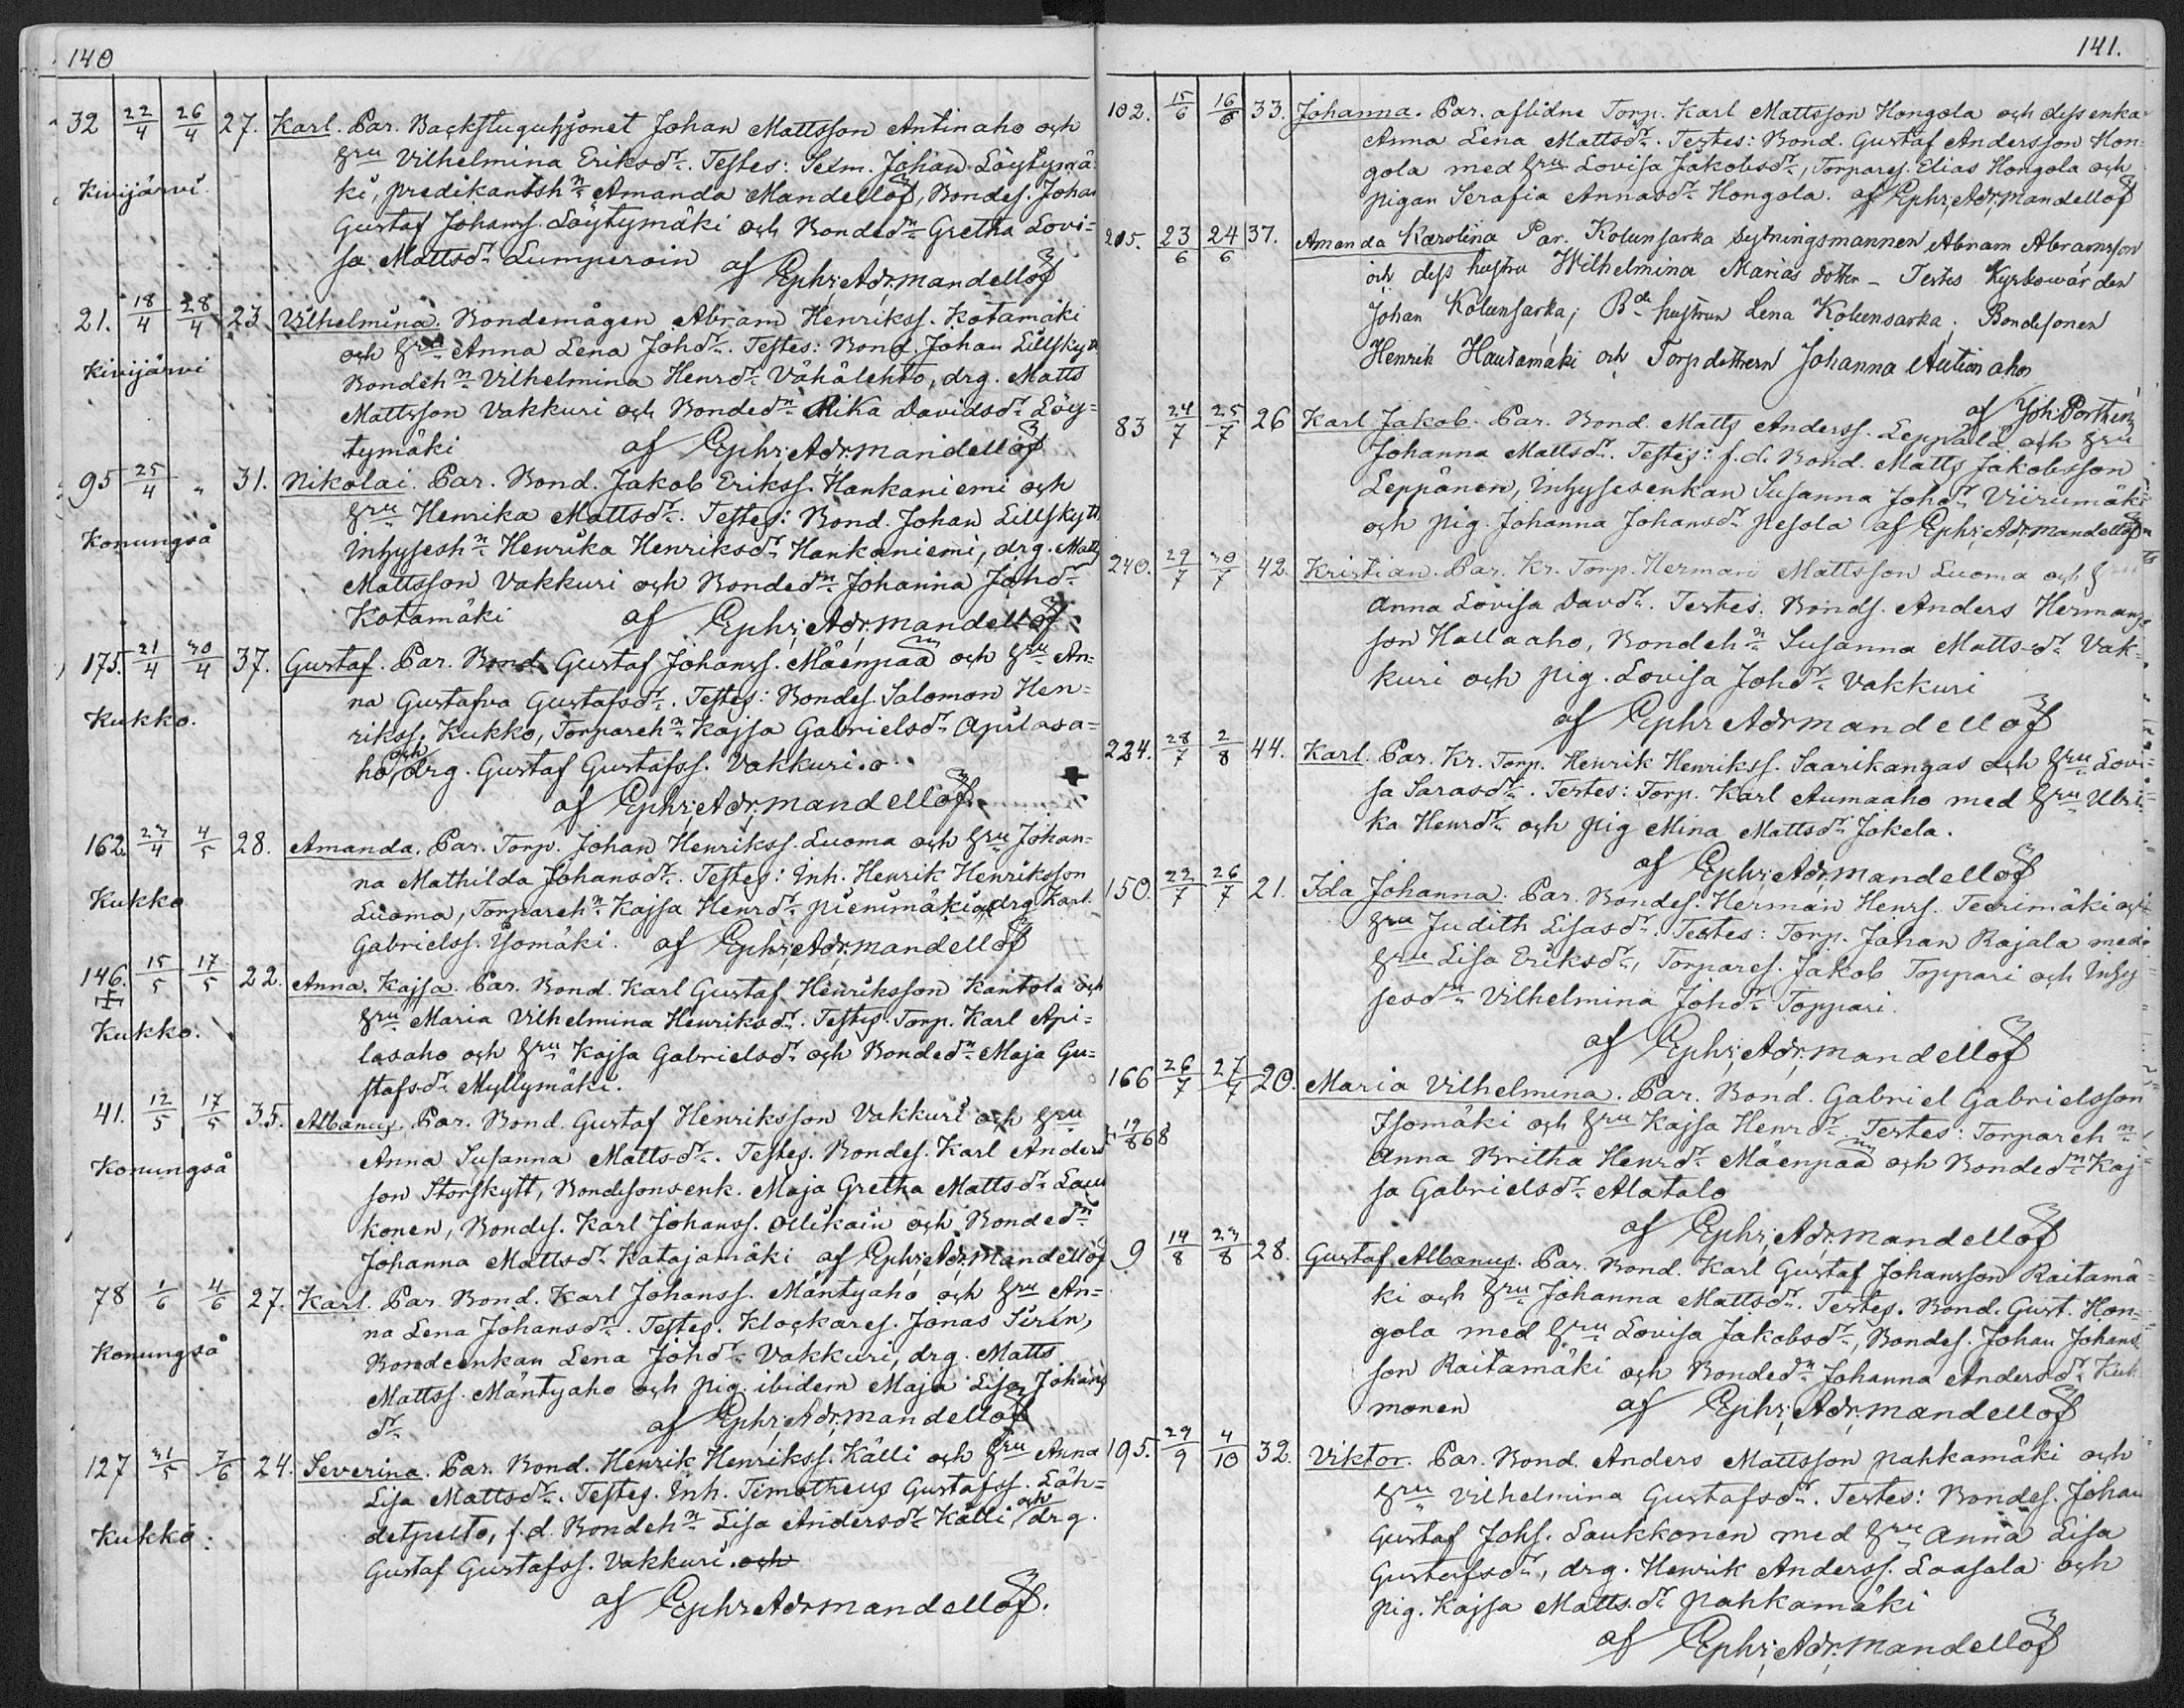 140
32 22/4 26/4 27. Karl. Par. Backstuguhjonet Johan Mattsson Antinaho och
hru Vilhelmina Eriksdr. Testes: Sexm. Johan Löytymä-
Kivijärvi. ki, predikantshn Amanda Mandellöf, Bondes. Johan
Gustaf Johanss. Löytymäki och Bondedn Gretha Lovi-
sa Mattsdr Lumperoin af Ephr. Adr. Mandellöf
21. 18/4 28/4 23 Vilhelmina. Bondemågen Abram Henrikss. Kotamäki
och hru Anna Lena Johdr. Testes: Bond. Johan Lillskytt
Kivijärvi Bondehn Vilhelmina Henrdr Vähälehto, drg. Matts
Mattsson Vakkuri och Bondedn Rika Davidsdr Löy-
tymäki af Ephr. Adr. Mandellöf
95 25/4 " 31. Nikolai. Par. Bond. Jakob Erikss. Hankaniemi och
hru Henrika Mattsdr. Testes: Bond. Johan Lillskytt
Konungså Inhyseshn Henrika Henriksdr Hankaniemi, drg. Matts
Mattsson Vakkuri och Bondedn Johanna Johdr
Kotamäki af Ephr. Adr. Mandellöf
175. 21/4 30/4 37. Gustaf. Par. Bond. Gustaf Johanss. Mäenpää och hru An-
na Gustafva Gustafsdr. Testes: Bondes. Salomon Hen-
Kukko. rikss. Kukko, Torparehn Kajsa Gabrielsdr Apilasa-
ho, och drg. Gustaf Gustafss. Vakkuri.
af Ephr. Adr. Mandellöf.
162. 23/4 4/5 28. Amanda. Par. Torp. Johan Henrikss. Luoma och hru Johan-
na Mathilda Johansdr. Testes: Inh. Henrik Henriksson
Kukko Luoma, Torparehn Kajsa Henrdr Pienimäki och drg Karl
Gabrielss. Isomäki. af Ephr. Adr. Mandellöf
146. 15/5 17/5 22. Anna Kajsa. Par. Bond. Karl Gustaf Henriksson Kantola och
hru Maria Vilhelmina Henriksdr. Testes. Torp. Karl Api-
Kukko. lasaho och hru Kajsa Gabrielsdr och Bondedn Maja Gu-
stafsdr Myllymäki.
41. 12/5 17/5 35. Albanus. Par. Bond. Gustaf Henriksson Vakkuri och hru
Anna Susanna Mattsdr. Testes. Bondes. Karl Anders
Konungså son Storskytt, Bondsonsenk. Maja Gretha Mattsdr Lau
konen, Bonds. Karl Johanss. Ollikain och Bondedn
Johanna Mattsdr Katajamäki af Ephr. Adr. Mandellöf
78 1/6 4/6 27. Karl. Par. Bond. Karl Johanss. Mäntyaho och hru An-
na Lena Johansdr. Testes. Klockares. Jonas Sirén,
Konungså Bondeenkan Lena Johdr Vakkuri, drg. Matts
Mattss. Mäntyaho och pig. ibidem Maja Lisa Johans
dr. af Ephr. Adr. Mandellöf
127 31/5 7/6 24. Severina. Par. Bond. Henrik Henrikss. Källi och hru Anna
Lisa Mattsdr. Testes. Inh. Timotheus Gustafss. Läh-
detpelto, f.d. Bondehn Lisa Andersdr Källi och drg.
Kukko. Gustaf Gustafss. Vakkuri. och
af Ephr Adr Mandellöf.
141.
102. 15/6 16/6 33. Johanna. Par. aflidne Torp. Karl Mattsson Hongola och dess enka
Anna Lena Mattsdr. Testes: Bond. Gustaf Andersson Hon-
gola med hru Lovisa Jakobsdr, Torpares. Elias Hongola och
pigan Serafia Annasdr Hongola. af Ephr. Adr. Mandellöf
205. 23/6 24/6 37. Amanda Karolina Par. Kolunsarka Sytningsmannen Abram Abramsson
och dess hustru Wilhelmina Marias dotter – Testes Kyrkowärden
Johan Kolunsarka; Bde hustrun Lena Kolunsarka; Bondesonen
Henrik Hautamäki och Torpdottern Johanna Autionaho
af Joh. Porthen
83 24/7 25/7 26 Karl Jakob. Par. Bond. Matts Anderss. Leppälä och hru
Johanna Mattsdr. Testes: f.d. Bond. Matts Jakobsson
Leppänen, Inhysesenkan Susanna Johdr Viirumäki
och pig. Johanna Johansdr Pesola af Ephr. Adr. Mandellöf
240. 29/7 30/7 42. Kristian. Par. Kr. Torp. Herman Mattsson Luoma och hru
Anna Lovisa Davdr. Testes. Bonds. Anders Hermans-
son Hallaaho, Bondehn Susanna Mattsdr Vak-
kuri och pig. Lovisa Johdr Vakkuri
af Ephr Adr Mandellöf
224. 28/7 2/8 44. Karl. Par. Kr. Torp. Henrik Henrikss. Saarikangas och hru Lovi-
sa Sarasdr. Testes: Torp. Karl Aumaaho med hru Ulri-
ka Henrdr och pig Mina Mattsdr Jokela.
af Ephr. Adr. Mandellöf
150. 22/7 26/7 21. Ida Johanna. Par. Bondes. Herman Henrs. Teerimäki och
hru Judith Lisasdr. Testes: Torp. Johan Rajala med
hru Lisa Eriksdr, Torpares. Jakob Toppari och Inhy
sesdn Vilhelmina Johdr Toppari.
af Ephr. Adr. Mandellöf
166 26/7 27/7 20. Maria Vilhelmina. Par. Bond. Gabriel Gabrielsson
† 19/8 68 Isomäki och hru Kajsa Henrdr Testes: Torparehn
Anna Britha Henrdr Mäenpää och Bondedn Kaj-
sa Gabrielsdr Alatalo
af Ephr. Adr. Mandellöf
9 14/8 23/8 28. Gustaf Albanus. Par. Bond. Karl Gustaf Johansson Raitamä-
ki och hru Johanna Mattsdr. Testes. Bond. Gust. Hon-
gola med hru Lovisa Jakobsdr, Bondes. Johan Johans-
son Raitamäki och Bondedn Johanna Andersdr
monen af Ephr. Adr. Mandellöf
195. 29/9 4/10 32. Viktor. Par. Bond. Anders Mattsson Pahkamäki och
hru Vilhelmina Gustafsdr. Testes: Bondes. Johan
Gustaf Johs. Laukkonen med hru Anna Lisa
Gustafsdr, drg. Henrik Anderss. Laasala och
pig. Kajsa Mattsdr Pahkamäki
af Ephr. Adr. Mandellöf